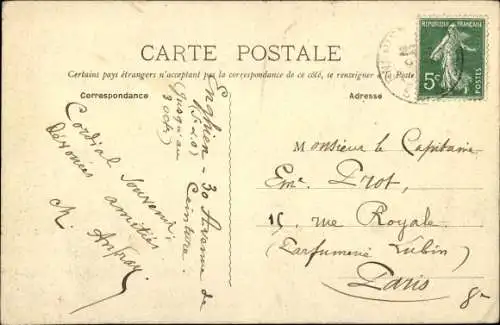 CARTE POSTALE
Certains pays étrangers n'acceptant pas la correspondance de ce côté, se renseigner à la Poste
Correspondance
Adresse
RÉPUBLIQUE FRANÇAISE
5c
Enghien - 30 Avenue de
(S.&.O.) Ceinture.
(jusqu'au
3 octr)
Cordial souvenir,
dévouées amitiés
Monsieur le Capitaine
Eme. Prot,
15, rue Royale
(Parfumerie Lubin)
Paris
8e